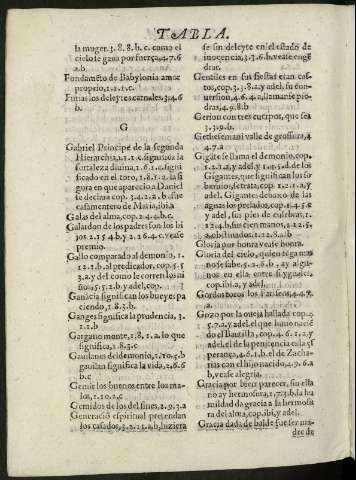 TABLA.
la muger. 3.8.8.b.c. como el
cielo se gana por fuerça, 4.7.6
a.b.
Fundamẽto de Babylonia amor
proprio, 1.1.5.c.
Furias los deleytes carnales, 3.4.6
b.
G
Gabriel Principe de la segunda
Hierarchia, 1.1.1.c. significa la
fortaleza diuina, 1.6.1.c. signi
ficado en el toro, 1.8.1.2. la fi
gura en que aparecio a Daniel
se declara cop. 3.4.2.a.b. fue
casamentero de Maria, ibi.a.
Galas del alma, cop. 2.4.4.b.c.
Galardon de los padres son los hi
jos 2.1.5.4.b. y 2.1.6.4.c. vease
premio.
Gallo comparado al demonio, 1.
1.2.1.b. al predicador, cop. 5.5
3.a. y del como le corren los ni
ños, 5.5.2.b. y adel, cop.
Ganacia significan los bueyes pa
ciendo, 1.8.3.b.
Ganges significa la prudencia, 3.
1.1.b
Gargano monte, 1.8.1.a. lo que
significa, 1.8.3.c
Gauilanes del demonio, 1.1.0.5.b
gauilan significa la vida, 2.6.6
b.c
Gemir los buenos entre los ma-
los, 1.10.2.c
Gemidos de los delfines, 2.9.3.a
Generació espiritual pretendan
los casados, 3.2.23.a.b, huuiera
se sin deleyte en el estado de
inocencia, 3.3.6.b. vease engẽ
drar.
Gentiles en sus fiestas eran cas-
tos, cop. 3.3.8.2. y adel, su con-
uersion, 4.6.4.a, llamanse pie
dras, 4.9.8.b
Gerion con tres cuerpos, que sea
3.3.9.b.
Gethsemani valle de grossura, 4
4.7.a
Gigãte se llama el demonio, cop.
1.2.1.a, y adel, y 1.4.5.d. de los
Gigantes, que significan los so
beruios, se trata, cop. 1.2.1.a, y
adel. Gigantes debaxo de las
aguas los prelados, cop. 1.5.4.5.8
y adel, sus pies de culebras, 1.
1.2.4.b, sus cien manos, 1.1.2.5
a, obstinados, 1.1.2.8.a.b
Gloria por honra vease honra.
Gloria del cielo, quien tega mas
no se sabe, 5.1.2.6.b, ay algo-
nos en ella entre si yguales,
cop. ibi.a, y adel.
Gordos toros los Fariseos, 4.4.7.
a.
Gozo por la oueja hallada cop. 4
5.7.2, y adel, el que se anunció
do el Bautista, cop. 4.6.1.2, y
adel, el de la penitencia cõ la es
perança, 4.6.1.b. el de Zacha-
rias con el hijo nacido, 4.9.6.a
b, vease alegria.
Gracia por bien parecer, sin ella
no ay hermosura, 1.7.3.b, la hu
mildad da gracia a la hermosu
ra del alma, cop. ibi, y adel.
Gracia dada de balde fue ser ma
dre de